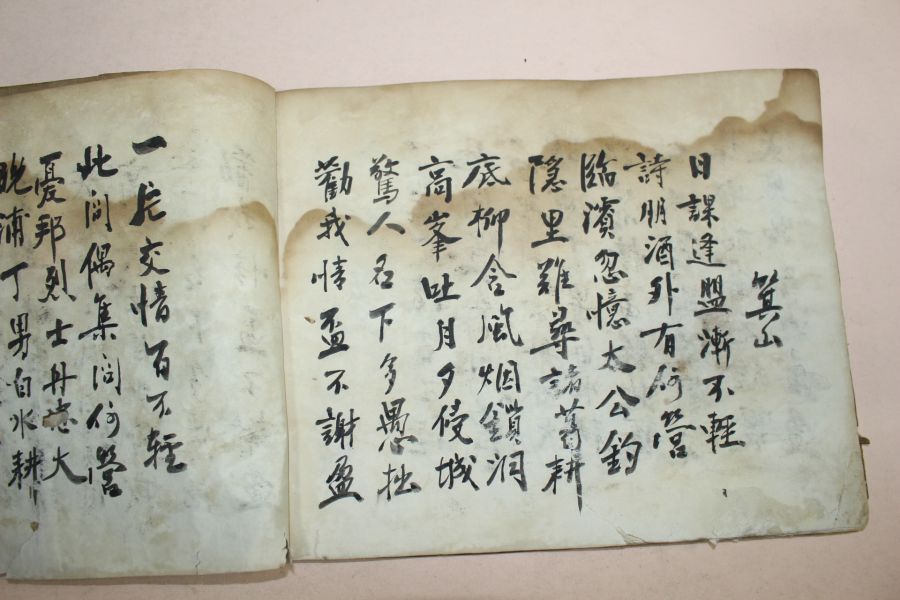 箕山
日課逢盟漸不輕
詩朋酒外有何營
臨濱忽憶太公釣
隱里難尋諸葛耕
底柳含風烟鎖洞
高峯吐月夕侵城
驚人名下多愚拙
勸我情盃不謝盈
一 交情百不輕
此間偶集問何營
憂邦烈士丹 大
晩浦丁男白水耕